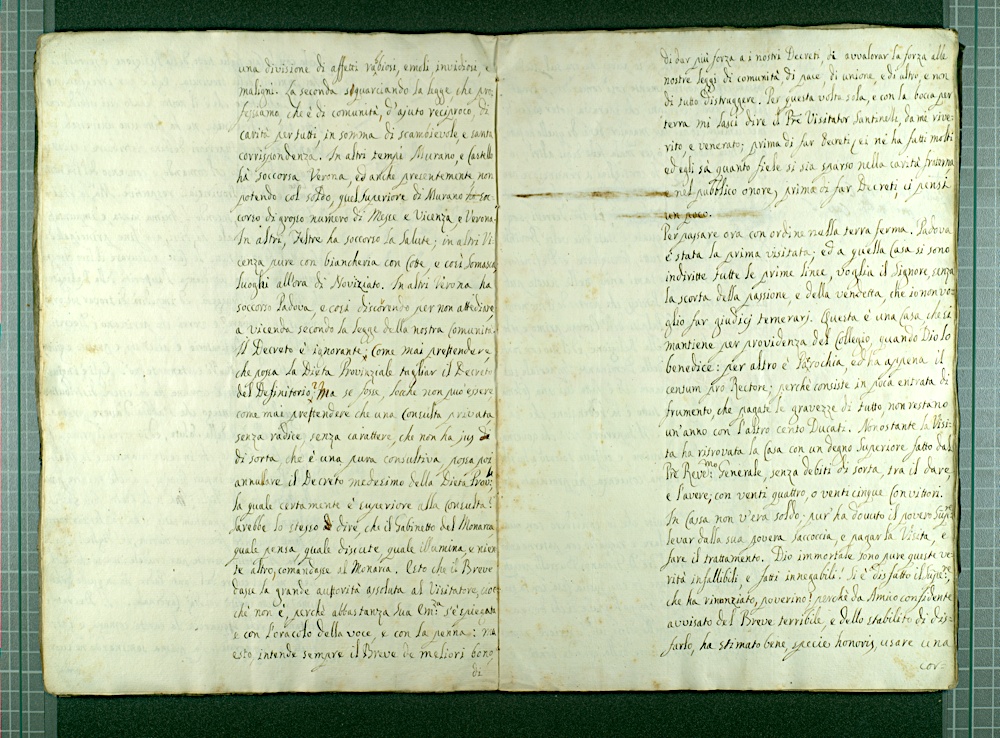 una divisione di affetti rabiosi, emoli invidiosi, e
maligni. La seconda squarciando la legge, che pro,
fessiamo, che è di comunità, d'ajuto reciproco, di
carità per tutti in somma di scambievole, e santa
corrispondenza. In altri tempi Murano, e Castello
hà soccorsa Verona, ed anche presentemente non
potendo col soldo, quel Superiore di Murano
corso di grosso numero di Messe e Vicenza, e Verona
In altri, Feltre ha soccorso la Salute; in altri Vi
cenza pure con biancheria con Cotte, e così Somasca
luoghi allora di Noviziato. In altri Verona ha
soccorso Padova, e così discorendo per non attediare
a vicenda secondo la legge della nostra Comunità.
Il Decreto è ignorante. Come mai prettendere
che possa la Dieta Provinziale tagliar il Decreto
del Definitorio? Ma se fosse, locche non può essere
come mai prettendere che una Consulta privata
senza radice, senza carattere, che non ha jus
di sorta, che è una pura consultiva possa poi
annulare il Decreto medesimo della Dieta Provle
la quale certamente è superiore alla Consulta?
Sarebbe lo stesso dire, che il Gabinetto del Monarca
quale pensa, quale discute, quale illumina, e nien
te altro, comandasse al Monarca. Esto che il Breve
dasse la grande autorità assoluta al Visitatore, cioe
chi non è, perchè abbastanza sua Emza s'è piegata
e con l'oracolo della voce, e con la penna: ma
esto, intende sempre il Breve de meliori bono
di
di dar più forza a i nostri Decreti, di avvalorar la forza alle
nostre leggi di comunità di pace, di unione, e di altro, e non
di tutto distruggere. Per questa volta sola, e con la bocca per
terra mi lasci dire il Pre Visitator Santinelli, da me rive-
rito e venerato; prima di far Decreti, ei ne ha fatti molti
ed egli sà quanto fiele si sia sparso nella carità fraterna
e nel pubblico onore, prima di far Decreti ci pensi
un poco.
Per passare ora con ordine nella terra ferma. Padova
è stata la prima visitata; ed a quella Casa si sono
indiritte tutte le prime linee, voglia il Signore, senza
la scorta della passione, e della vendetta, che io non vo-
glio far giudicj temerarj. Questa è una Casa che si
mantiene per providenza del Collegio, quando Dio lo
benedice: per altro è Parochia, ed ha appena il
centum pro Rectore; perchè consiste in poca entrata di
frumento, che pagate le gravezze di tutto non restano
un'anno con l'altro cento Ducati. Nonostante la Visi-
ta ha ritrovata la Casa con un degno Superiore fatto dal
Pre Revemo Generale, senza debiti di sorta, tra il dare,
e l'avere; con venti quattro, o venti cinque Convittori.
In Cassa non v'era soldo; pur ha dovuto il povero Supre
levar dalla sua povera saccoccia, e pagar la Visita, e
fare il trattamento. Dio immortale sono pure queste ve-
rità infallibili, e fatti innegabili! Si è disfatto il Supre,
che ha rinonziato, poverino! perchè da Amico confidente
avvisato del Breve terribile, e dello stabilito di dis-
farlo, ha stimato bene, specie honoris, usare una
cor-